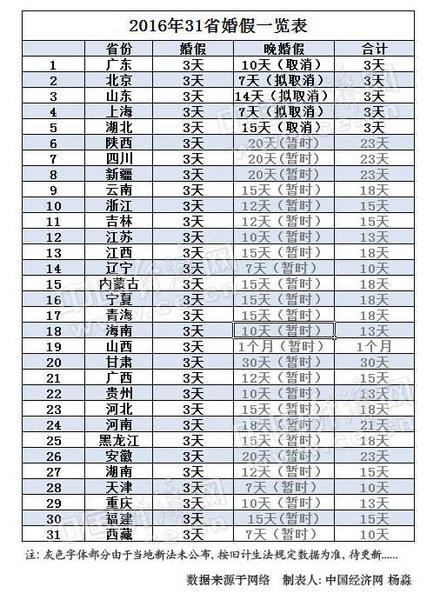 2016年31省婚假一览表
省份 婚假 晚婚假 合计
1 广东 3天 10天（取消） 3天
2 北京 3天 7天（拟取消） 3天
3 山东 3天 14天（拟取消） 3天
4 上海 3天 7天（拟取消） 3天
5 湖北 3天 15天（取消） 3天
6 陕西 3天 20天(暂时) 23天
7 四川 3天 20天（暂时） 23天
8 新疆 3天 20天（暂时） 23天
9 云南 3天 15天（暂时） 18天
10 浙江 3天 12天（暂时） 15天
11 吉林 3天 12天（暂时） 15天
12 江苏 3天 10天（暂时） 13天
13 江西 3天 15天（暂时） 18天
14 辽宁 3天 7天（暂时） 10天
15 内蒙古 3天 15天（暂时） 18天
16 宁夏 3天 15天（暂时） 18天
17 青海 3天 15天（暂时） 18天
18 海南 3天 10天（暂时） 13天
19 山西 3天 1个月（暂时） 1个月
20 甘肃 3天 30天（暂时） 30天
21 广西 3天 12天（暂时） 15天
22 贵州 3天 10天（暂时） 13天
23 河北 3天 15天（暂时） 18天
24 河南 3天 18天（暂时） 21天
25 黑龙江 3天 15天（暂时） 18天
26 安徽 3天 20天（暂时） 23天
27 湖南 3天 12天（暂时） 15天
28 天津 3天 7天（暂时） 10天
29 重庆 3天 10天（暂时） 13天
30 福建 3天 15天(暂时) 15天
31 西藏 3天 7天（暂时） 10天
注：灰色字体部分由于当地新法未公布，按旧计生法规定数据为准，待更新......
数据来源于网络 制表人：中国经济网 杨淼